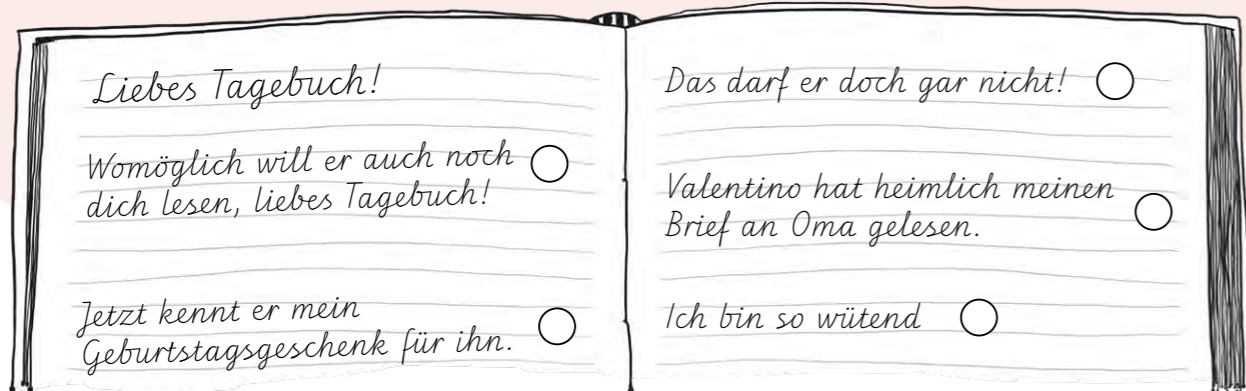 Liebes Tagebuch!
Womöglich will er auch noch
dich lesen, liebes Tagebuch!
Jetzt kennt er mein
Geburtstagsgeschenk für ihn.
Das darf er doch gar nicht!
Valentino hat heimlich meinen
Brief an Oma gelesen.
Ich bin so wütend